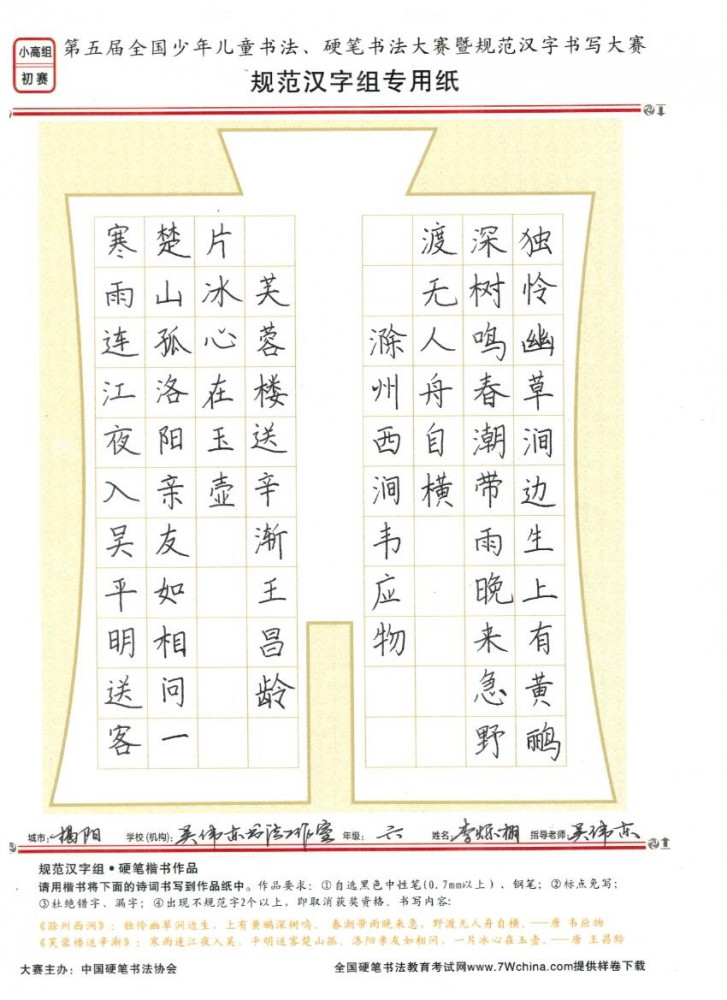 小高组
初赛
第五届全国少年儿童书法、硬笔书法大赛暨规范汉字书写大赛
规范汉字组专用纸
独怜幽草涧边生上有黄鹂
深树鸣春潮带雨晚来急野
渡无人舟自横
滁州西涧韦应物
寒雨连江夜入吴平明送客
楚山孤洛阳亲友如相问一
片冰心在玉壶
芙蓉楼送辛渐王昌龄
城市:揭阳 学校(机构):吴伟亦书法工作室 年级:六 姓名:李烁 指导老师:吴伟亦
规范汉字组·硬笔楷书作品
请用楷书将下面的诗词书写到作品纸中。作品要求：①自选黑色中性笔(0.7mm以上)、钢笔；②标点免写；
③杜绝错字、漏字；④出现不规范字2个以上，即取消获奖资格。书写内容：
《滁州西涧》：独怜幽草涧边生，上有黄鹂深树鸣。 春潮带雨晚来急，野渡无人舟自横。——唐 韦应物
《芙蓉楼送辛渐》：寒雨连江夜入吴，平明送客楚山孤。洛阳亲友如相问，一片冰心在玉壶。——唐 王昌龄
大赛主办：中国硬笔书法协会 全国硬笔书法教育考试网www.7Wchina.com提供样卷下载